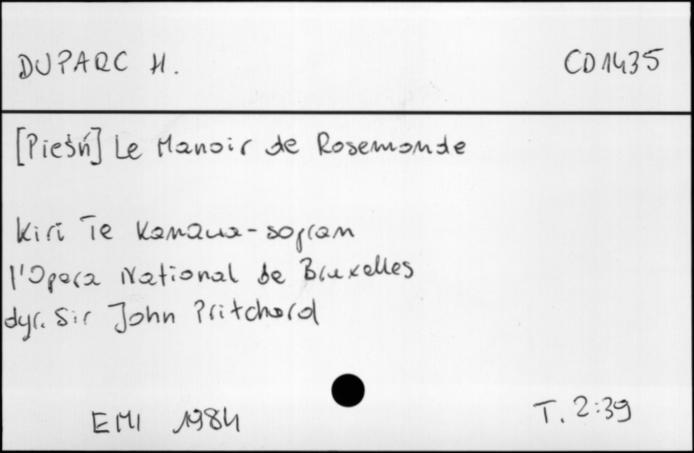 DUPARC H. CD1435
[Pieśń] Le Manoir de Rosemonde
Kiri Te Kanawa - sopran
l'Opera National de Bruxelles
dyr. Sir John Pritchard
EMI 1984 T. 2:39